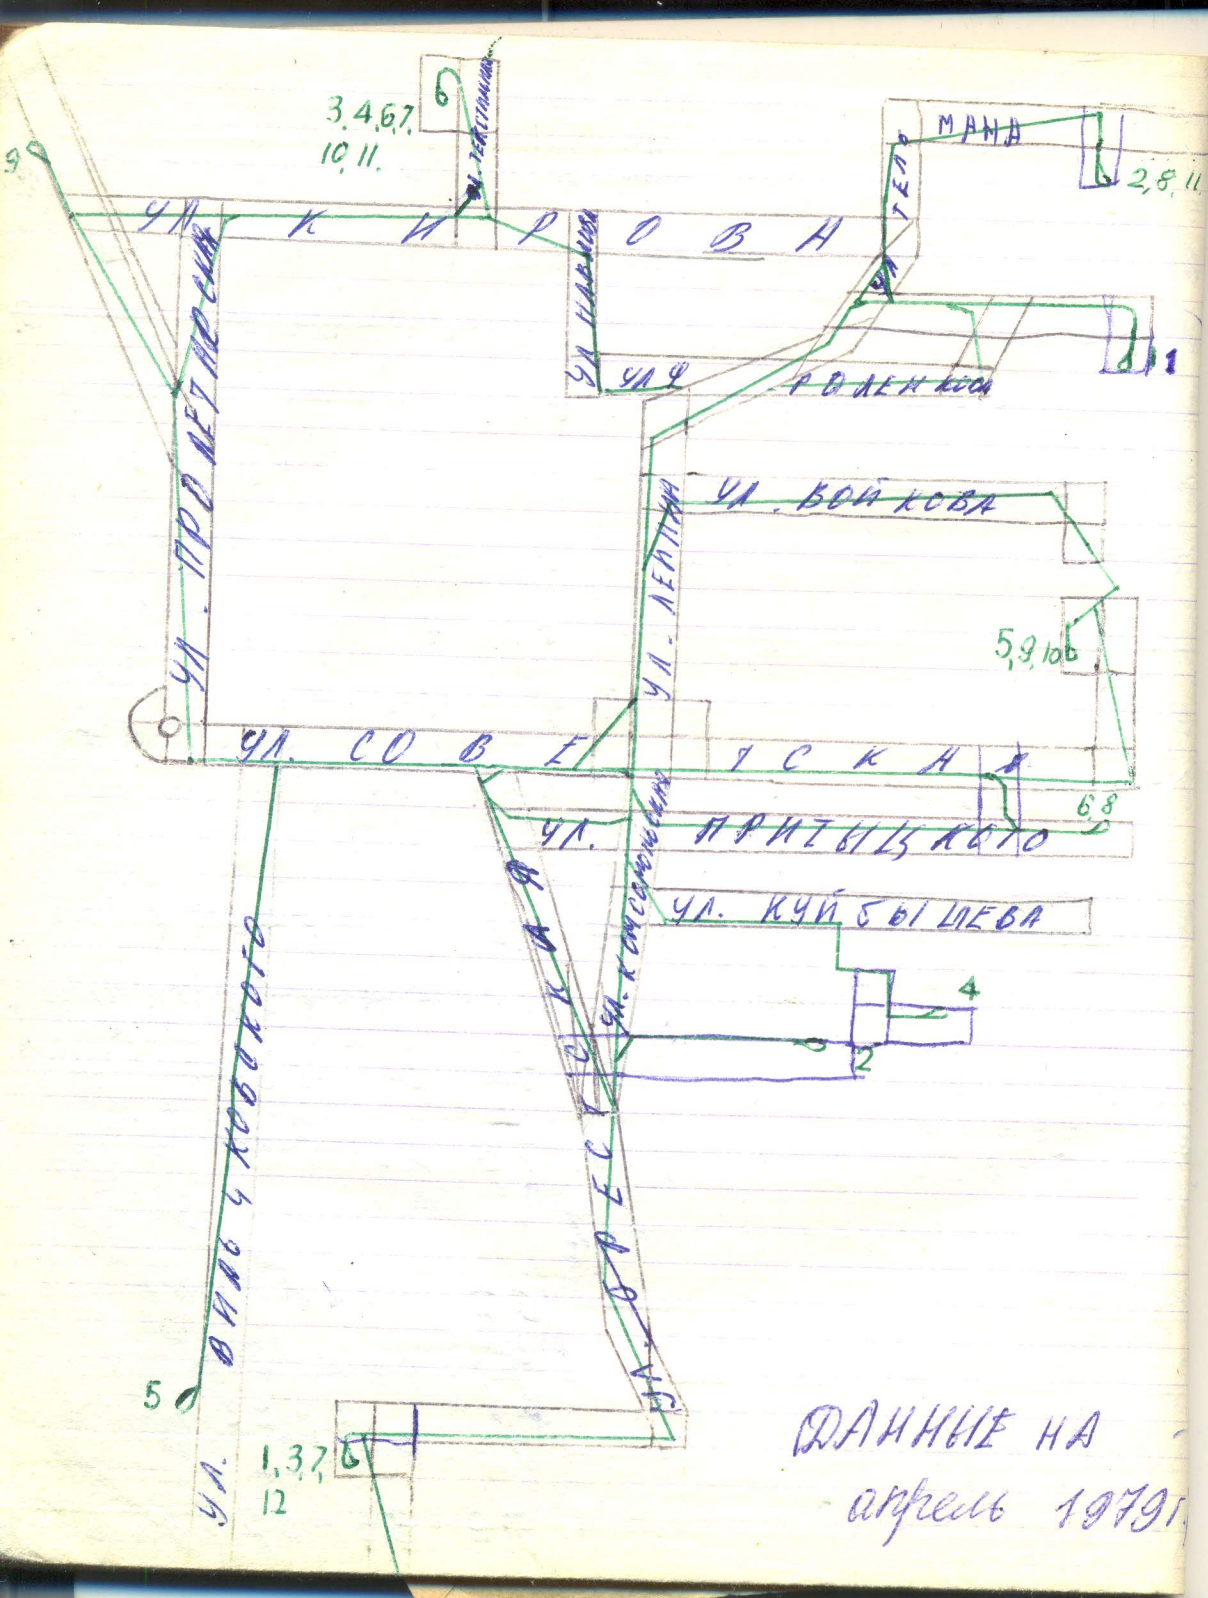 6
3,4,6,7,
10,11.
9
МАНА
ТЕЛЬ
2,8,11
УЛ К И Р О В А
УЛ
1
УЛ Ф
РОЛЕНКОВ
УЛ. ПРОЛЕТАРСКАЯ
УЛ. ВОЙКОВА
УЛ. ЛЕНИНА
5,9,10
УЛ. СОВЕТСКАЯ
6,8
УЛ. ПРИТЫЦКОГО
УЛ. КОМСОМОЛЬСКАЯ
УЛ. КУЙБЫШЕВА
4
2
УЛ. БРЕСТСКАЯ
УЛ. ВИЛЬЧКОВСКОГО
5
1,3,7,
12
ДАННЫЕ НА
апрель 1979г.